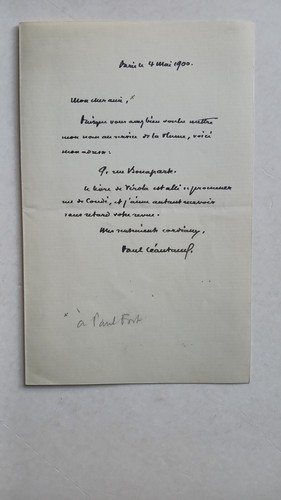 Paris le 4 Mai 1900.
Mon cher ami, x
Puisque vous avez bien voulu mettre
mon nom au service de la Plume, voici
mon adresse :
9, rue Bonaparte.
le livre de est allé se promener
rue de Condé, et j'aime autant recevoir
sans retard votre revue.
Mes sentiments cordiaux,
Paul Léautaud.
x à Paul Fort